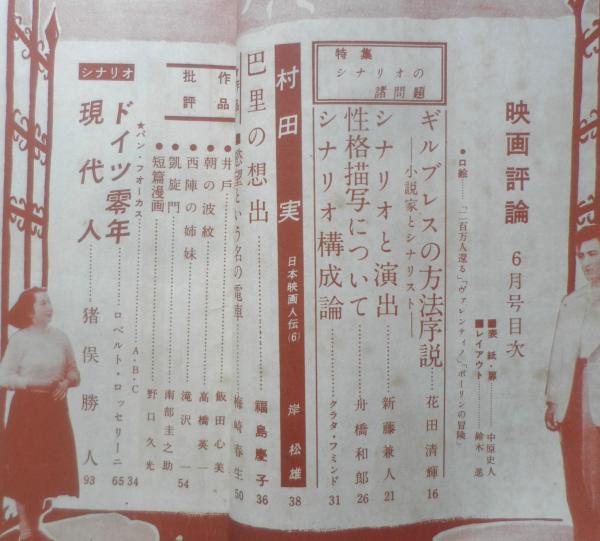 映画評論 6月号目次
■表紙・扉…………中原史人
■レイアウト…………鈴木
●口絵……「二百万人還る」「ヴァレンティノ」「ポーリンの冒険」
特集
シナリオの
諸問題
ギルブレスの方法序説……花田清輝 16
――小説家とシナリスト――
シナリオと演出……新藤兼人 21
性格描写について……舟橋和郎 26
シナリオ構成論……クラタ・フミンド 31
村田実 日本映画人伝(6) 岸松雄 38
巴里の想出……福島慶子 36
■慾望という名の電車……梅崎春生 50
作品
批評
●井戸……飯田心美
●朝の波紋……高橋英一
●西陣の姉妹……滝沢一 54
●凱旋門……南部圭之助
●短篇漫画……野口久光
★パン・フォーカス……A・B・C 34
シナリオ
ドイツ零年……ロベルト・ロッセリーニ 65
現代人……猪俣勝人 93